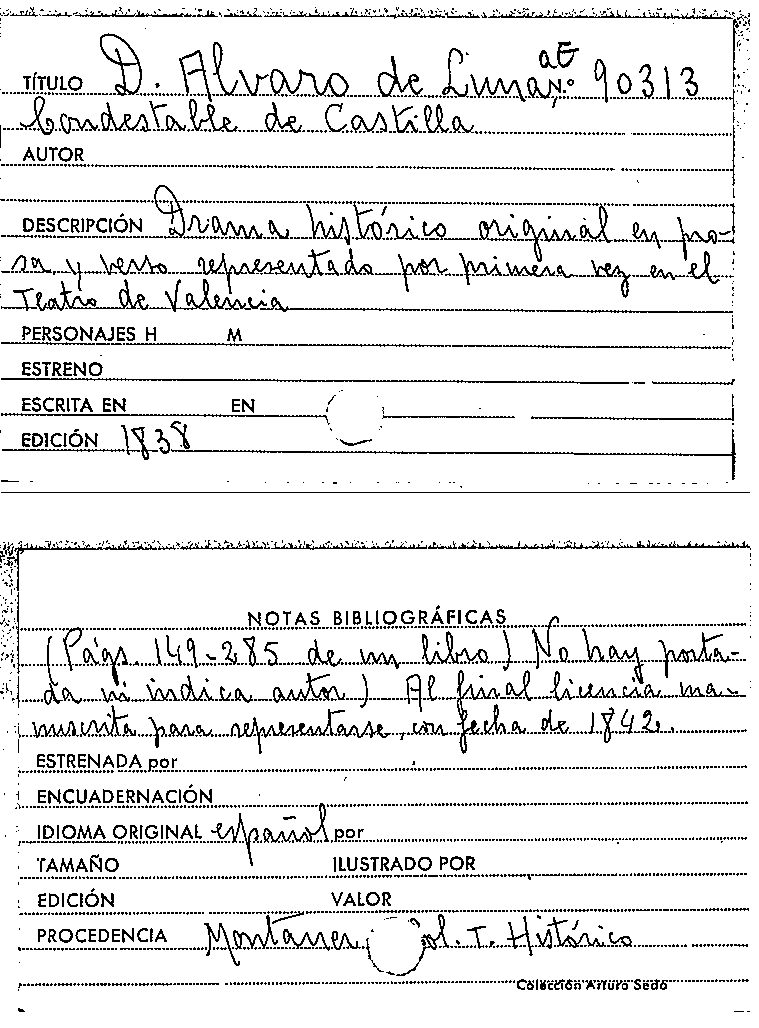 at
TÍTULO D. Alvaro de Luna, N.º 90313
Condestable de Castilla
AUTOR
DESCRIPCIÓN Drama histórico original en pro-
sa y verso representado por primera vez en el
Teatro de Valencia
PERSONAJES H M
ESTRENO
ESCRITA EN EN
EDICIÓN 1838
NOTAS BIBLIOGRÁFICAS
(Págs. 149-285 de un libro) No hay porta-
da ni indica autor) Al final licencia ma-
nuscrita para representarse, con fecha de 1842.
ESTRENADA por
ENCUADERNACIÓN
IDIOMA ORIGINAL español por
TAMAÑO ILUSTRADO POR
EDICIÓN VALOR
PROCEDENCIA Montaner, Col. T. Histórico
Colección Arturo Sedó